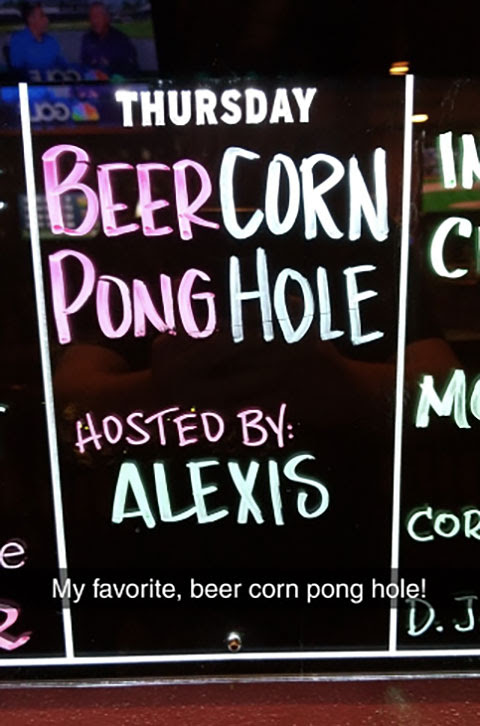 THURSDAY
BEER CORN
PONG HOLE
HOSTED BY:
ALEXIS
My favorite, beer corn pong hole!
IN
C
MO
COR
D. J
e